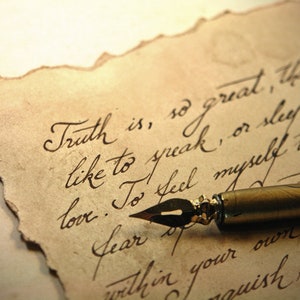 Truth is, so great, th
like to speak, or sleep
love. To feel myself t
fear
within your own
nquish